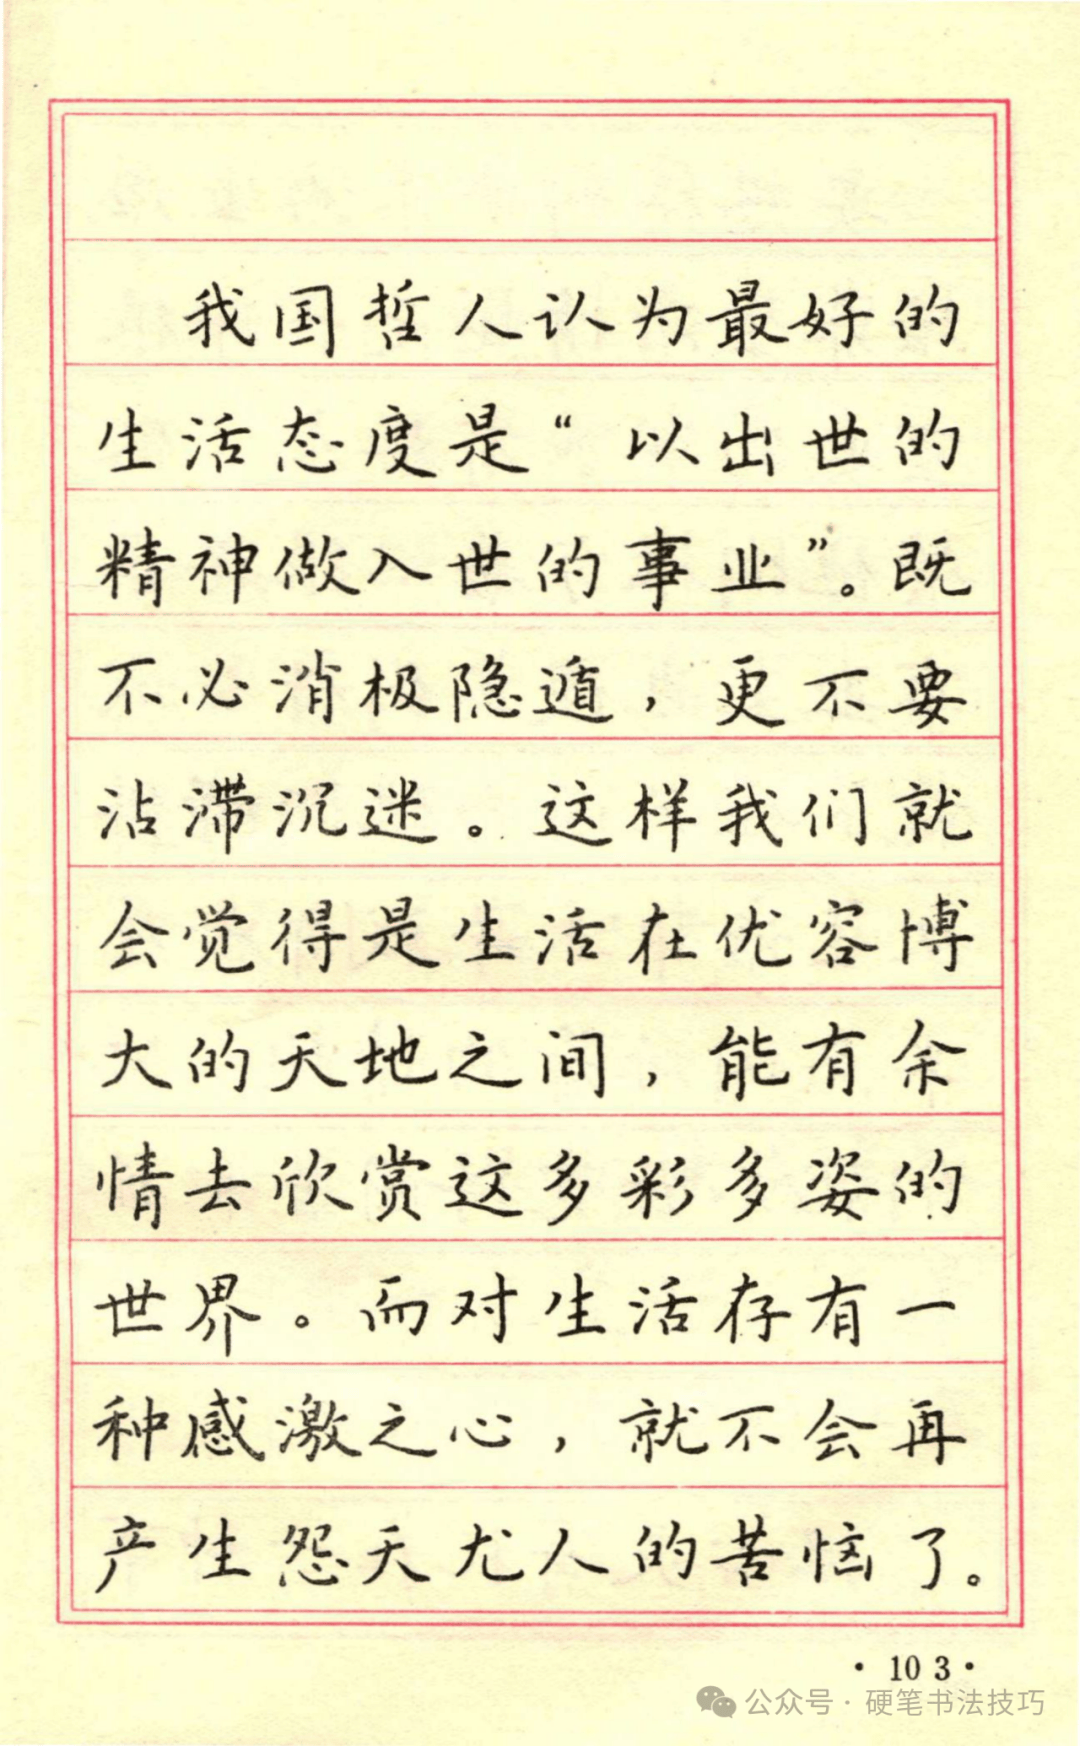 我国哲人认为最好的
生活态度是“以出世的
精神做入世的事业”。既
不必消极隐遁，更不要
沾滞沉迷。这样我们就
会觉得是生活在优容博
大的天地之间，能有余
情去欣赏这多彩多姿的
世界。而对生活存有一
种感激之心，就不会再
产生怨天尤人的苦恼了。
·103·
公众号·硬笔书法技巧